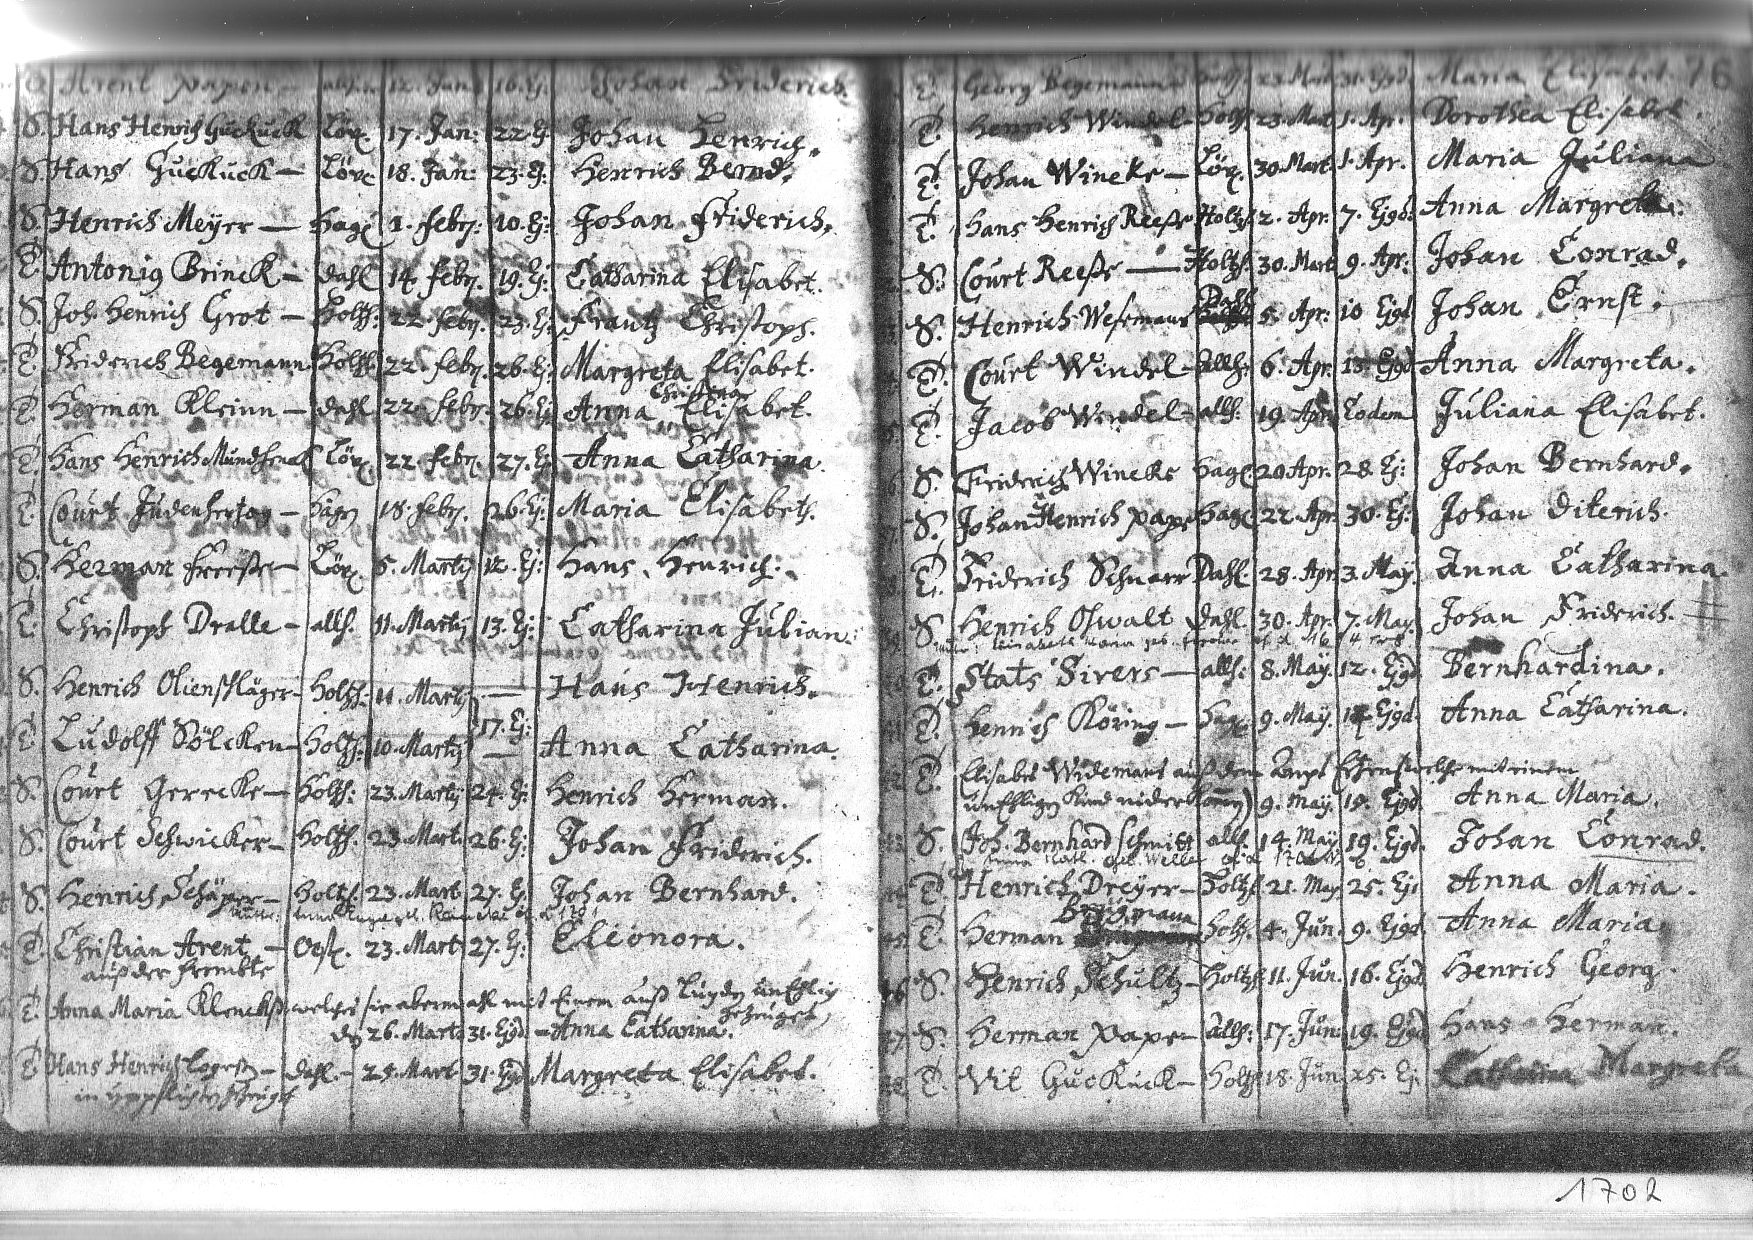 S. Arent Papen – 12. Jan: 16. Ej: Johan Friderich.
S. Hans Henrich Guckuck Löx. 17. Jan: 22. Ej Johan Henrich.
S. Hans Guckuck – Löx. 18. Jan: 23. Ej: Henrich Bernd.
S. Henrich Meÿer – Hag: 1. febr: 10. Ej: Johan Friderich.
T. Antonig Brinck – Dahl 14. febr. 19. Ej: Catharina Elisabet.
S. Joh. Henrich Grot – Holtzh: 22. febr. 23. Ej: Frantz Christoph.
T. Friderich Begemann Holtzh. 22. febr. 26. Ej: Margreta Elisabet.
Christina
T. Herman Kleinn – Dahl 22. febr. 26. Ej Anna Elisabet.
T. Hans Henrich Löx. 22. febr. 27. Ej Anna Catharina.
T. Court Judenhertzog – Hagen 18. febr. 26. Ej: Maria Elisabeth.
S. Herman Freese – Löx. 5. Martij 12. Ej: Hans Henrich.
T. Christoph Dralle – allh. 11. Martij 13. Ej: Catharina Julian.
S. Henrich Olienschläger – Holtzh: 11. Martij – Hans Henrich.
17. Ej:
T. Ludolff Sölcken – Holtzh: 10. Martij – Anna Catharina.
S. Court Gerecke – Holtzh: 23. Martij 24. Ej: Henrich Herman.
S. Court Schwicker – Holtzh. 23. Mart. 26. Ej: Johan Friderich.
S. Henrich Schäper – Holtzh. 23. Mart. 27. Ej Johan Bernhard.
T. Christian Arent – Oest. 23. Mart. 27. Ej: Eleonora.
auß der frembte
T. Anna Maria Klencks welches sie abermahl mit Einem auß Lugde unEhlig
gezeuget,
d. 26. Mart. 31. Ejgd – Anna Catharina.
T. Hans Henrich – Dahl. – 25. Mart. 31. Ejgd Margreta Elisabet.
76
T. Georg Begemann 23. Mart. 31. Ejgd. Maria Elisabet.
T. Henrich Windel – Holtzh. 23. Mart 1. Apr. Dorothea Elisabet.
T. Johan Wineke – Löx. 30. Mart. 1. Apr. Maria Juliana
T. Hans Henrich Reese Holtzh. 2. Apr. 7. Ejgd: Anna Margreta.
S. Court Reese – Holtzh. 30. Mart 9. Apr: Johan Conrad.
Dahl
S. Henrich Wesemann 5. Apr: 10 Ejgd Johan Ernst.
T. Court Windel – allh: 6. Apr. 13. Ejgd Anna Margreta.
T. Jacob Windel – allh: 19. Apr. Eodem Juliana Elisabet.
S. Friderich Wineke Hag: 20. Apr. 28. Ej: Johan Bernhard.
S. Johan Henrich Pape Hag: 22. Apr. 30. Ej: Johan Diterich.
T. Friderich Schnarr Dahl. 28. Apr. 3. May. Anna Catharina.
S. Henrich Oswalt Dahl. 30. Apr. 7. May. Johan Friderich.
T. Stats Sivers – allh: 8. May. 12. Ejgd Bernhardina.
T. Henrich Köring – Hag: 9. May. 14. Ejgd. Anna Catharina.
T. Elisabet Widemans auß dem Ampt mit einem
unEhligen Kind niderkom̄en) 9. May. 15. Ejgd. Anna Maria.
S. Joh. Bernhard Schmitt allh. 14. May 19. Ejgd. Johan Conrad.
T. Henrich Dreyer – Holtzh. 21. May 25. Ej: Anna Maria.
T. Herman Holtzh. 4. Jun. 9. Ejgd Anna Maria
S. Henrich Schultz – Holtzh 11. Jun. 16. Ejgd Henrich Georg.
S. Herman Pape – allh: 17. Jun: 19. Ejgd Hans Herman.
T. Vit Guckuck – Holtzh 18. Jun 25. Ej. Catharina Margreta
1702